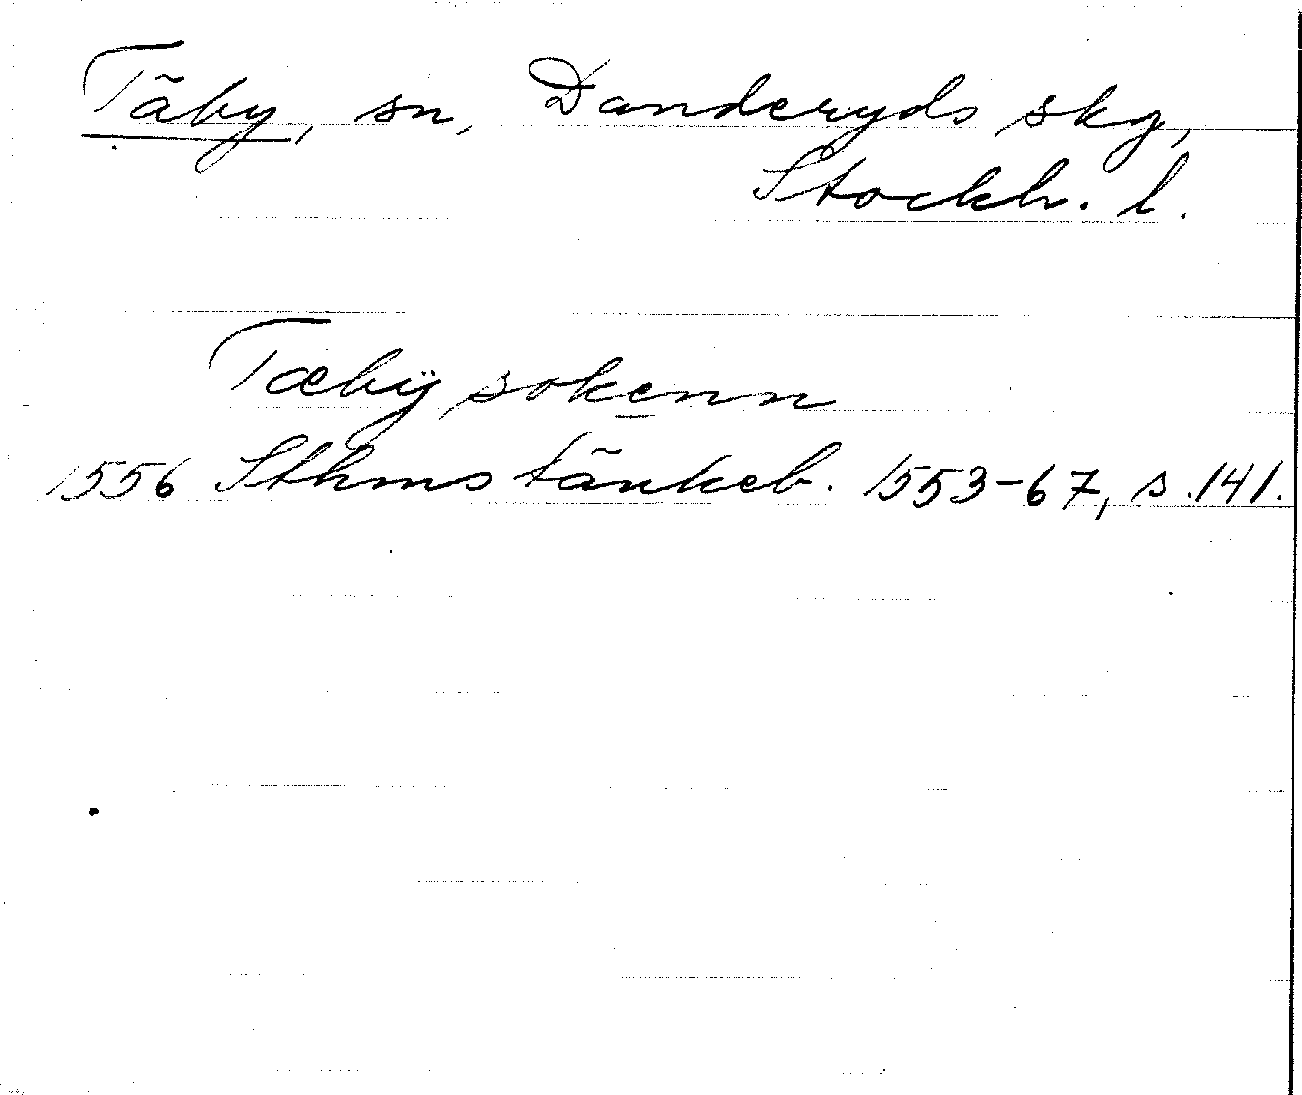 Täby, sn, Danderyds skg,
Stockh. l.
Tæbÿ sokenn
1556 Sthms tänkeb. 1553-67, s. 141.